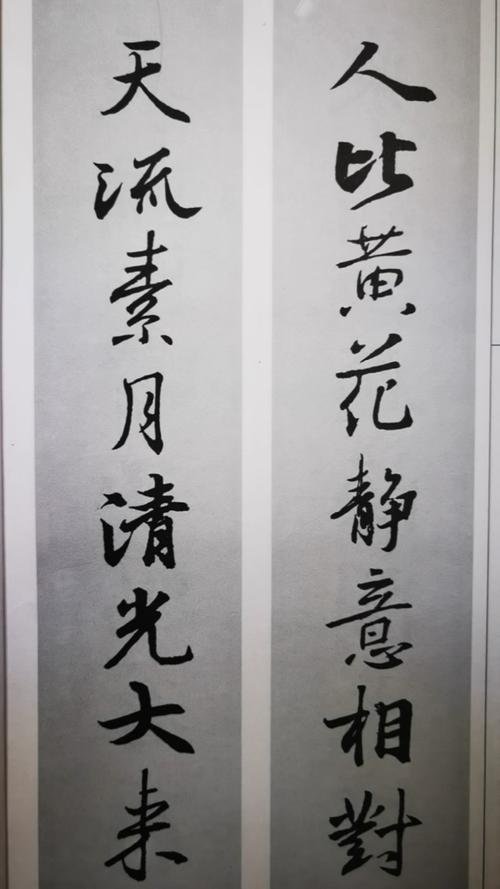 人比黄花静意相對
天流素月清光大来